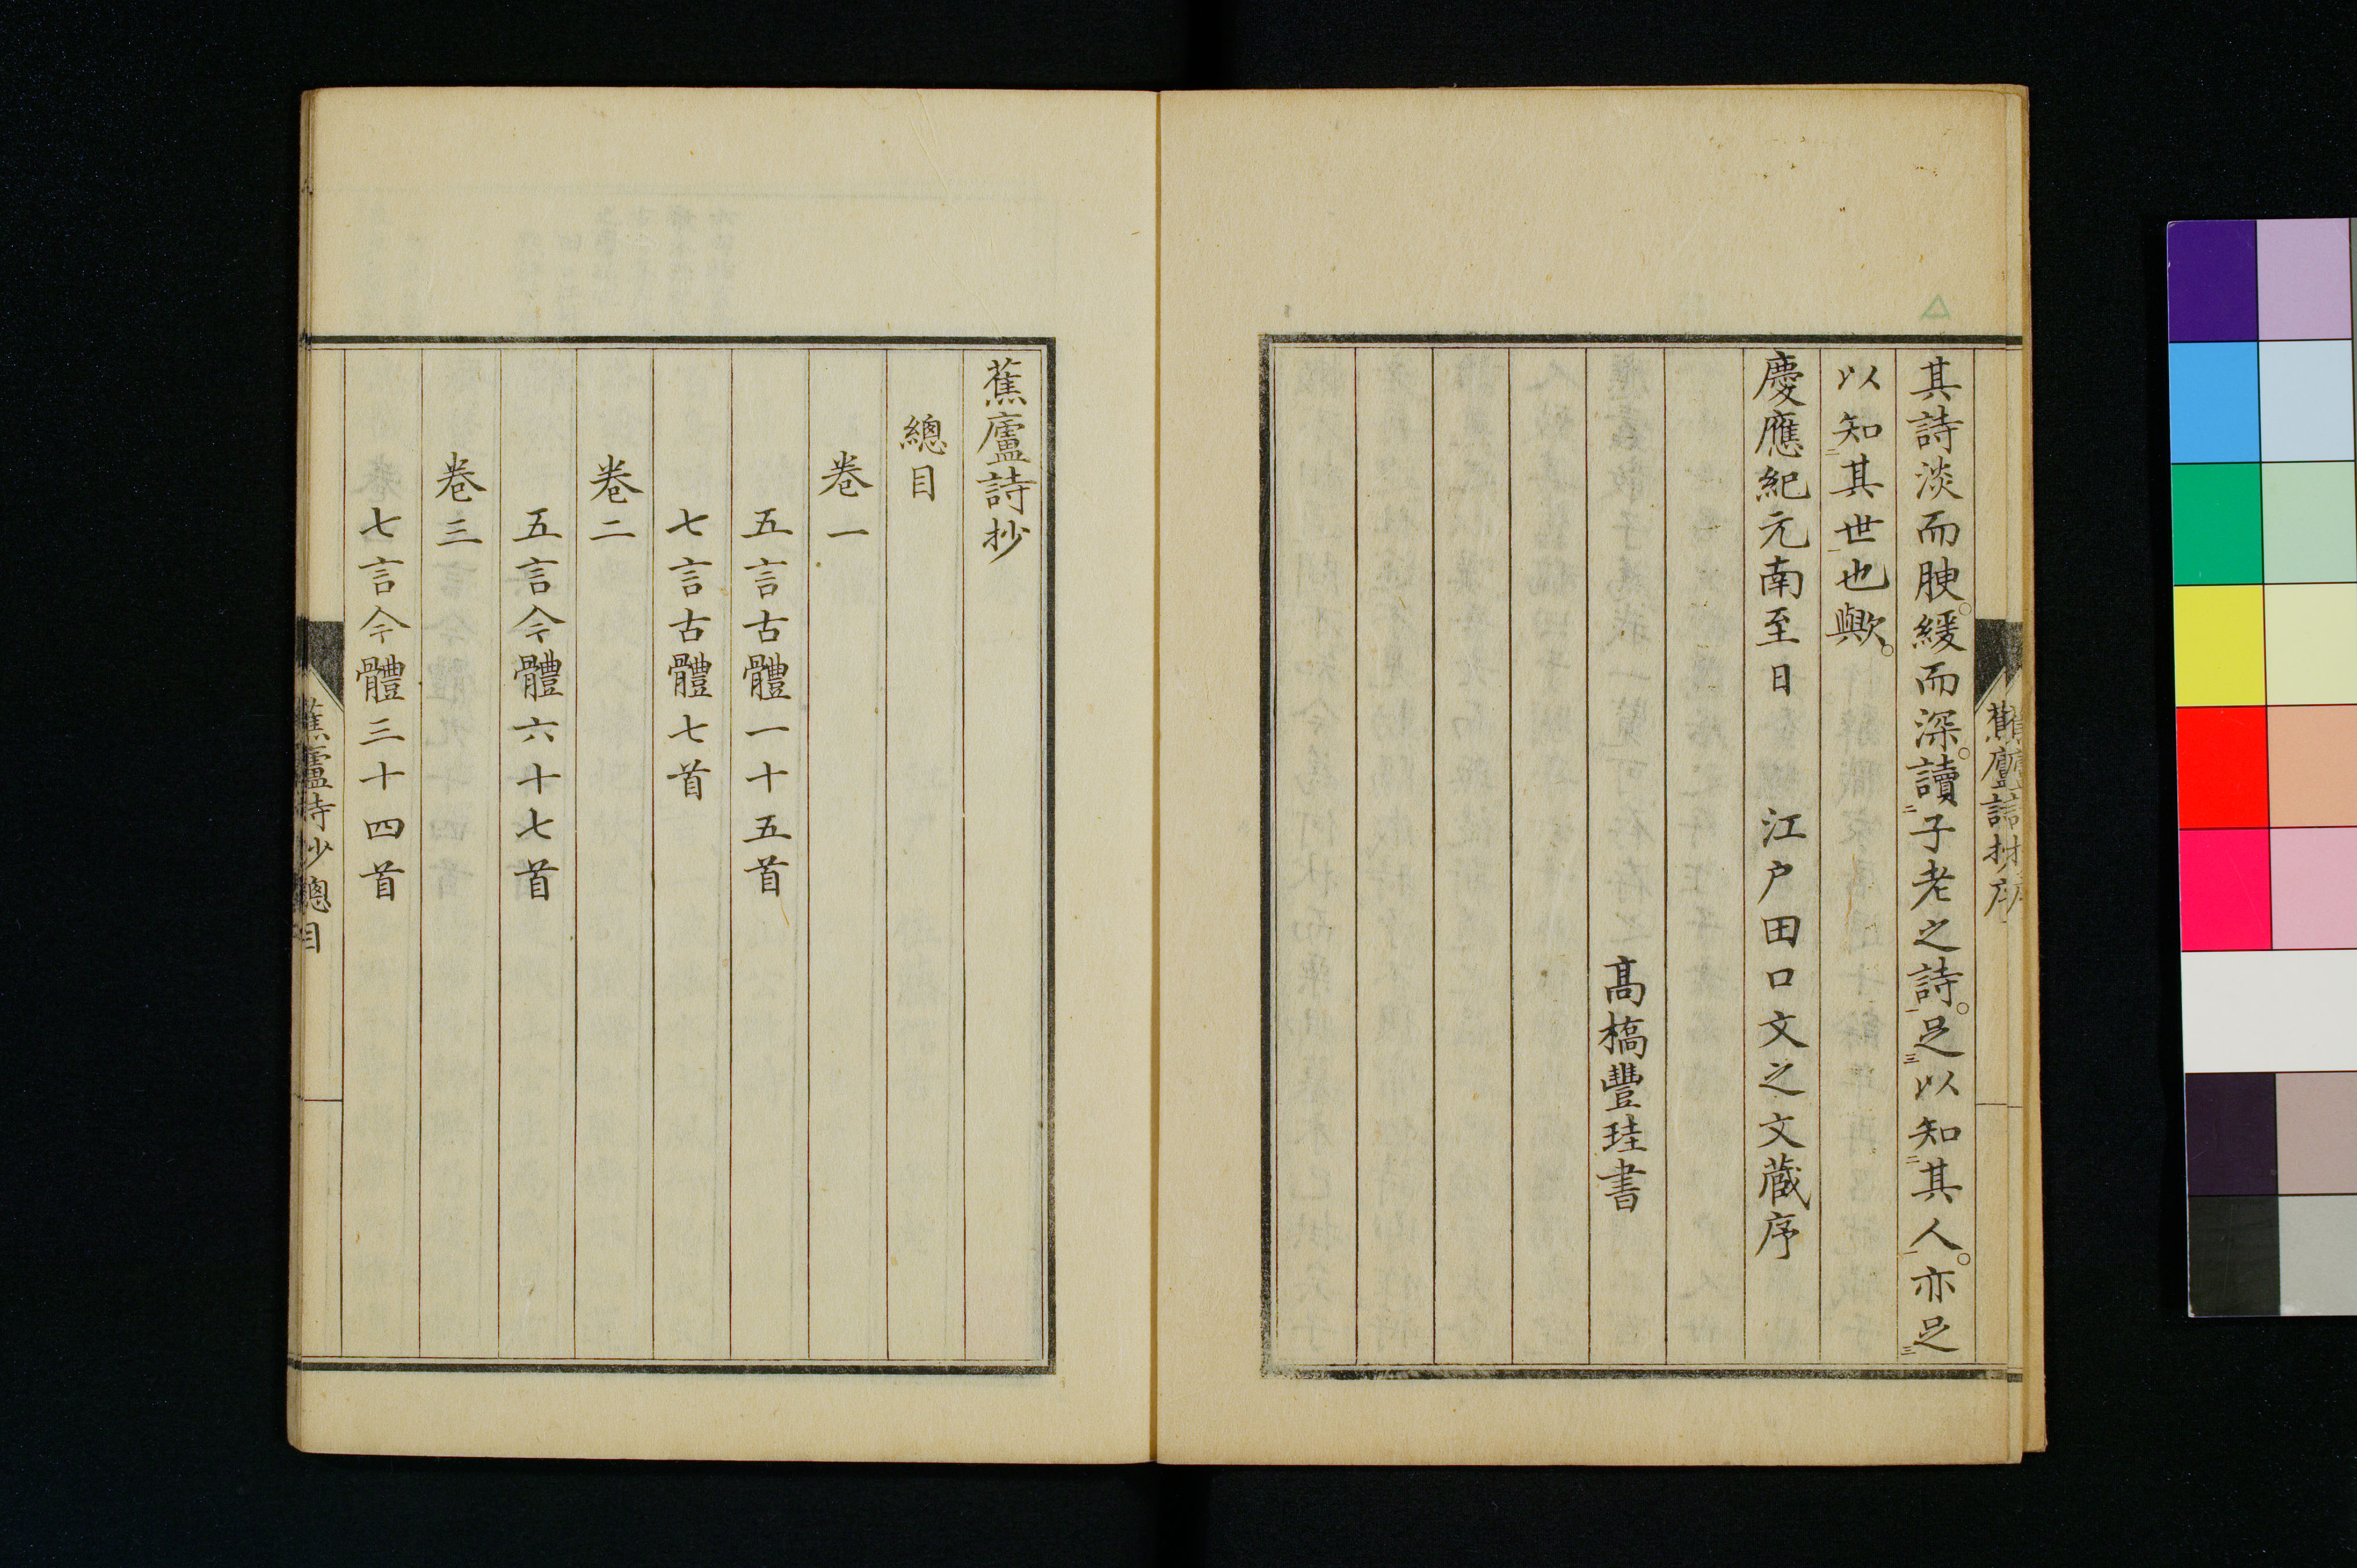 其詩淡而腴。緩而深。讀二子老之詩。一足三以知二其人。一亦足三
以知二其世一也歟。
慶應紀元南至日　江戶田口文之文蔵序
髙槗豐珪書
蕉廬詩抄
總目
卷一
五言古體一十五首
七言古體七首
卷二
五言今體六十七首
卷三
七言今體三十四首
蕉廬詩抄總目